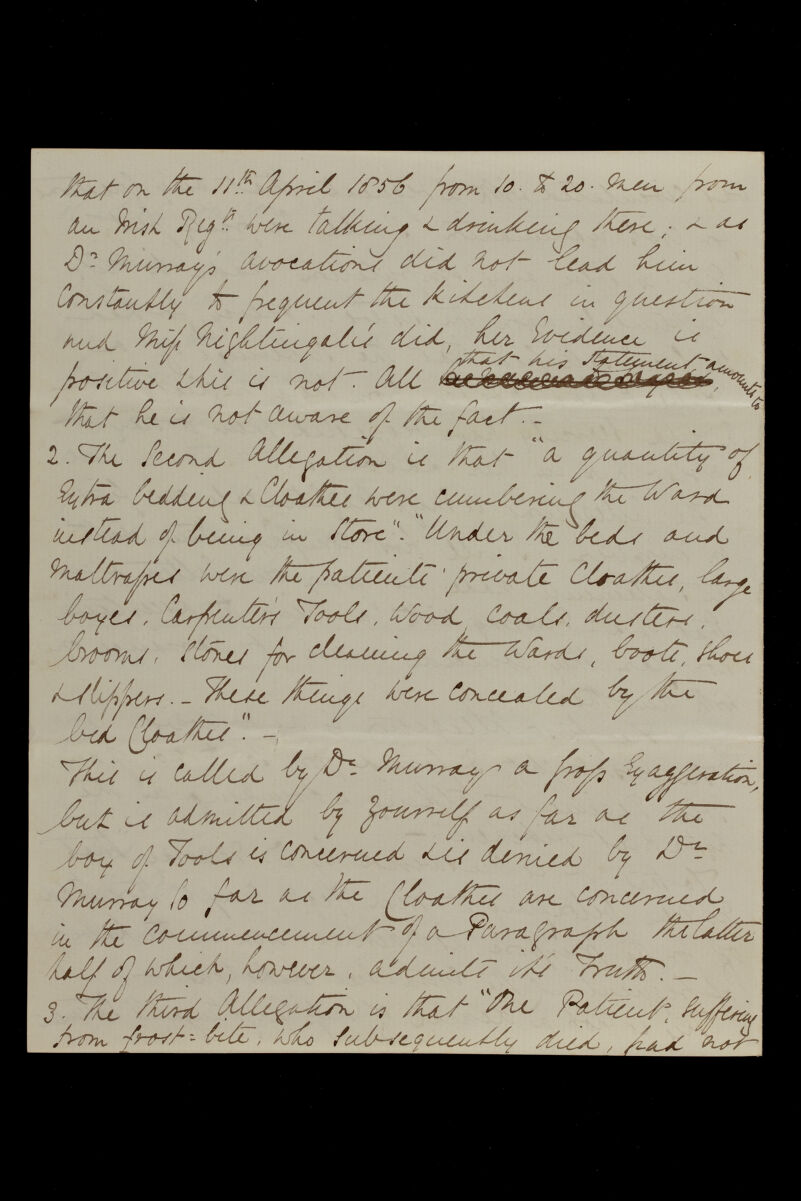 that on the 11th April 1856 from 10. to 20. men from
an Irish Regt. were talking & drinking there; & as
Dr. Murray's avocations did not lead him
constantly to frequent the kitchens in question
and Miss Nightingale's did, her Evidence is
that his Statement amounts to
positive & his is not. All
that he is not aware of the fact. -
2. The Second Allegation is that "a quantity of
Extra bedding & Cloathes were cumbering the Ward
instead of being in Store". "Under the beds and
Mattrasses were the patients' private Cloathes, large
boxes, Carpenter's Tools, Wood, Coals, dusters,
brooms, Stones for cleaning the Wards, boots, shoes
& slippers. - These things were concealed by the
bed Cloathes". -
This is called by Dr. Murray a gross Exaggeration,
but is admitted by yourself as far as the
box of Tools is concerned & is denied by Dr.
Murray so far as the Cloathes are concerned
in the commencement of a Paragraph the latter
half of which, however, admits its Truth. -
3. The third Allegation is that "One Patient, suffering
from frost=bite, who subsequently died, had not